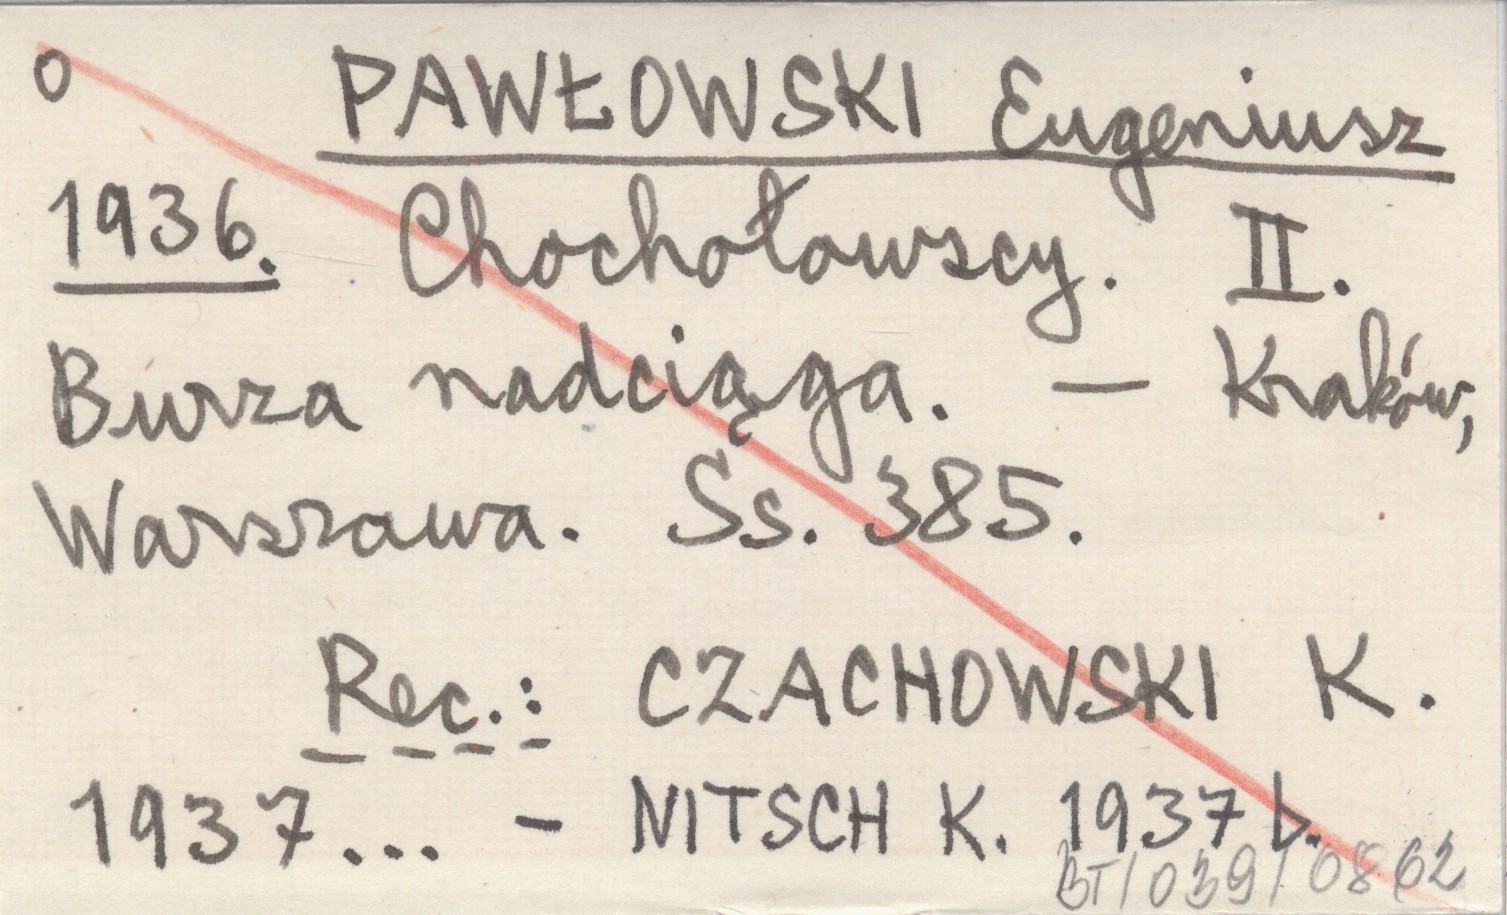 o PAWŁOWSKI Eugeniusz
1936. Chochołowscy. II.
Burza nadciąga. — Kraków,
Warszawa. Ss. 385.
Rec.: CZACHOWSKI K.
1937... - NITSCH K. 1937 b.
BT/039/0862